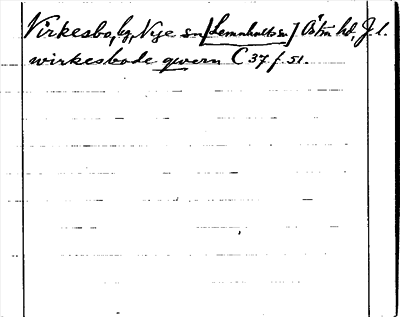 Virkesbo, by, Nye sn [Lemnhults sn] Östra hd, J. l.
wirkesbode qwern C 37 f. 51.